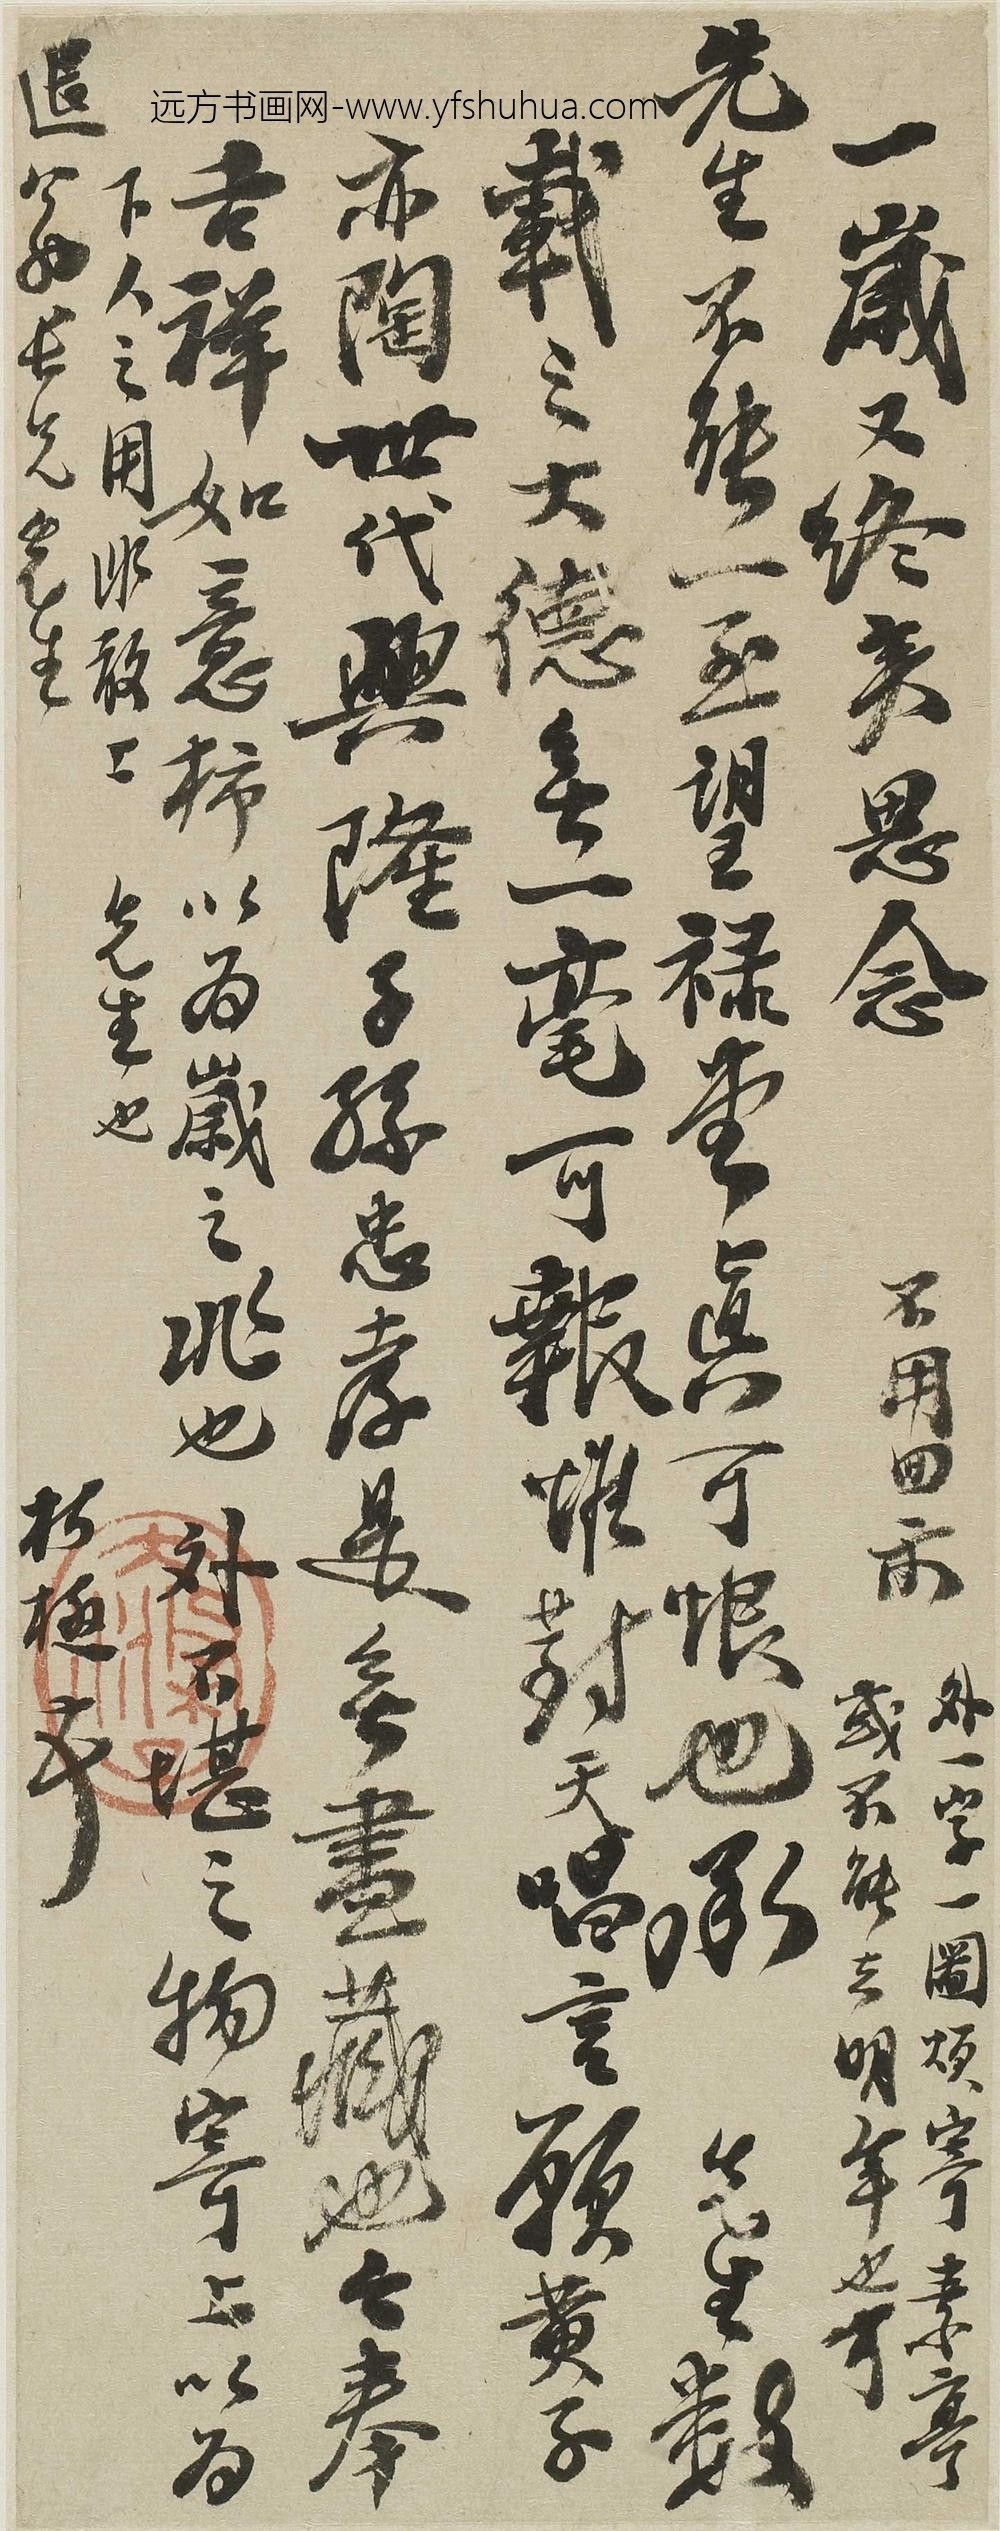 远方书画网-www.yfshuhua.com
一歲又終矣思念
先生不能一至望祿堂真可恨也承 先生數
載之大德無一毫可報惟對天唱言願黃子
亦陶世代興隆子孫忠孝是無盡藏也今奉
吉祥如意柿以為歲之兆也 外不堪之物寄上以為
下人之用非敢上 先生也
退翁如長兄先生 朽極
不用回示
外一字一圖煩寄素亭
或不能去明年也可